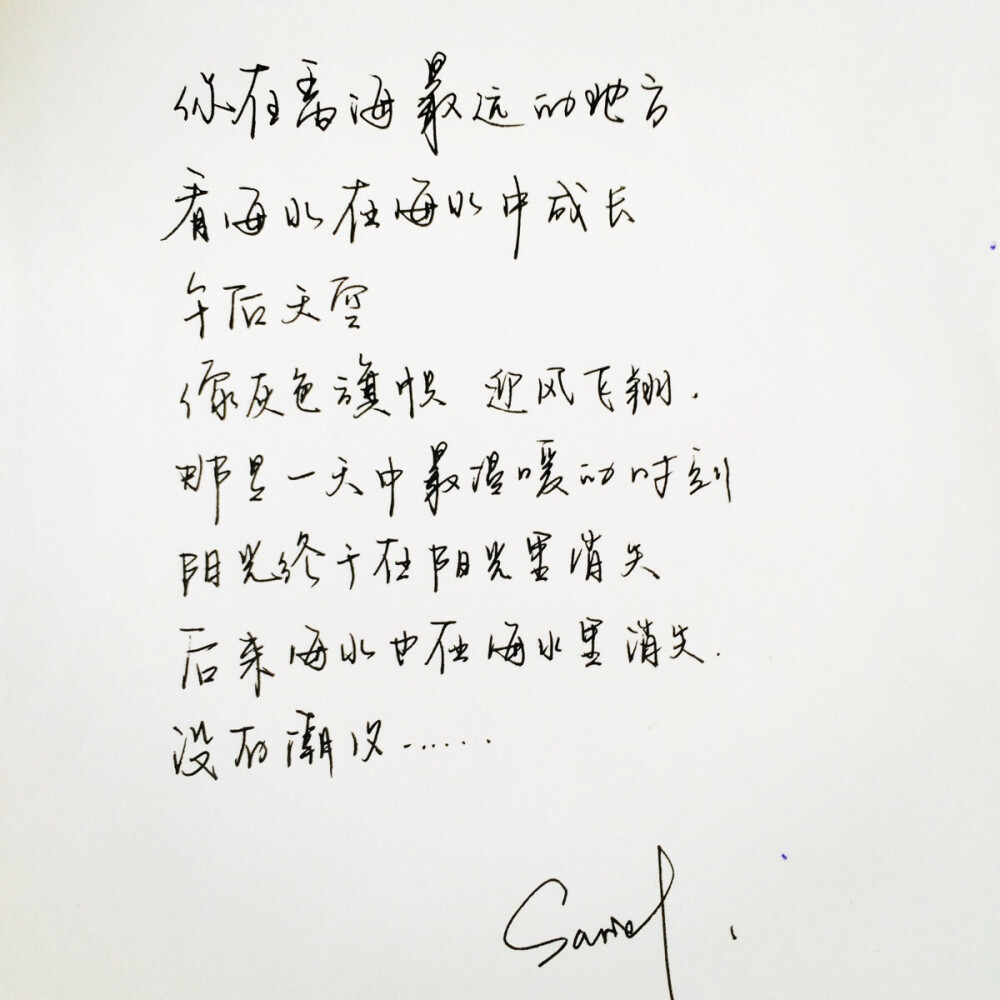 你在看海最远的地方
看海水在海水中成长
午后天空
像灰色旗帜 迎风飞翔.
那是一天中最温暖的时刻
阳光终于在阳光里消失
后来海水也在海水里消失.
没有潮汐……